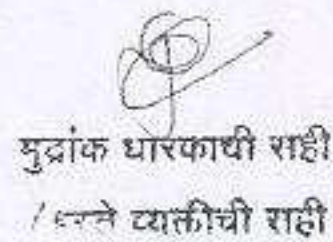 मुद्रांक धारकाची सही
/ व्यक्तीची सही